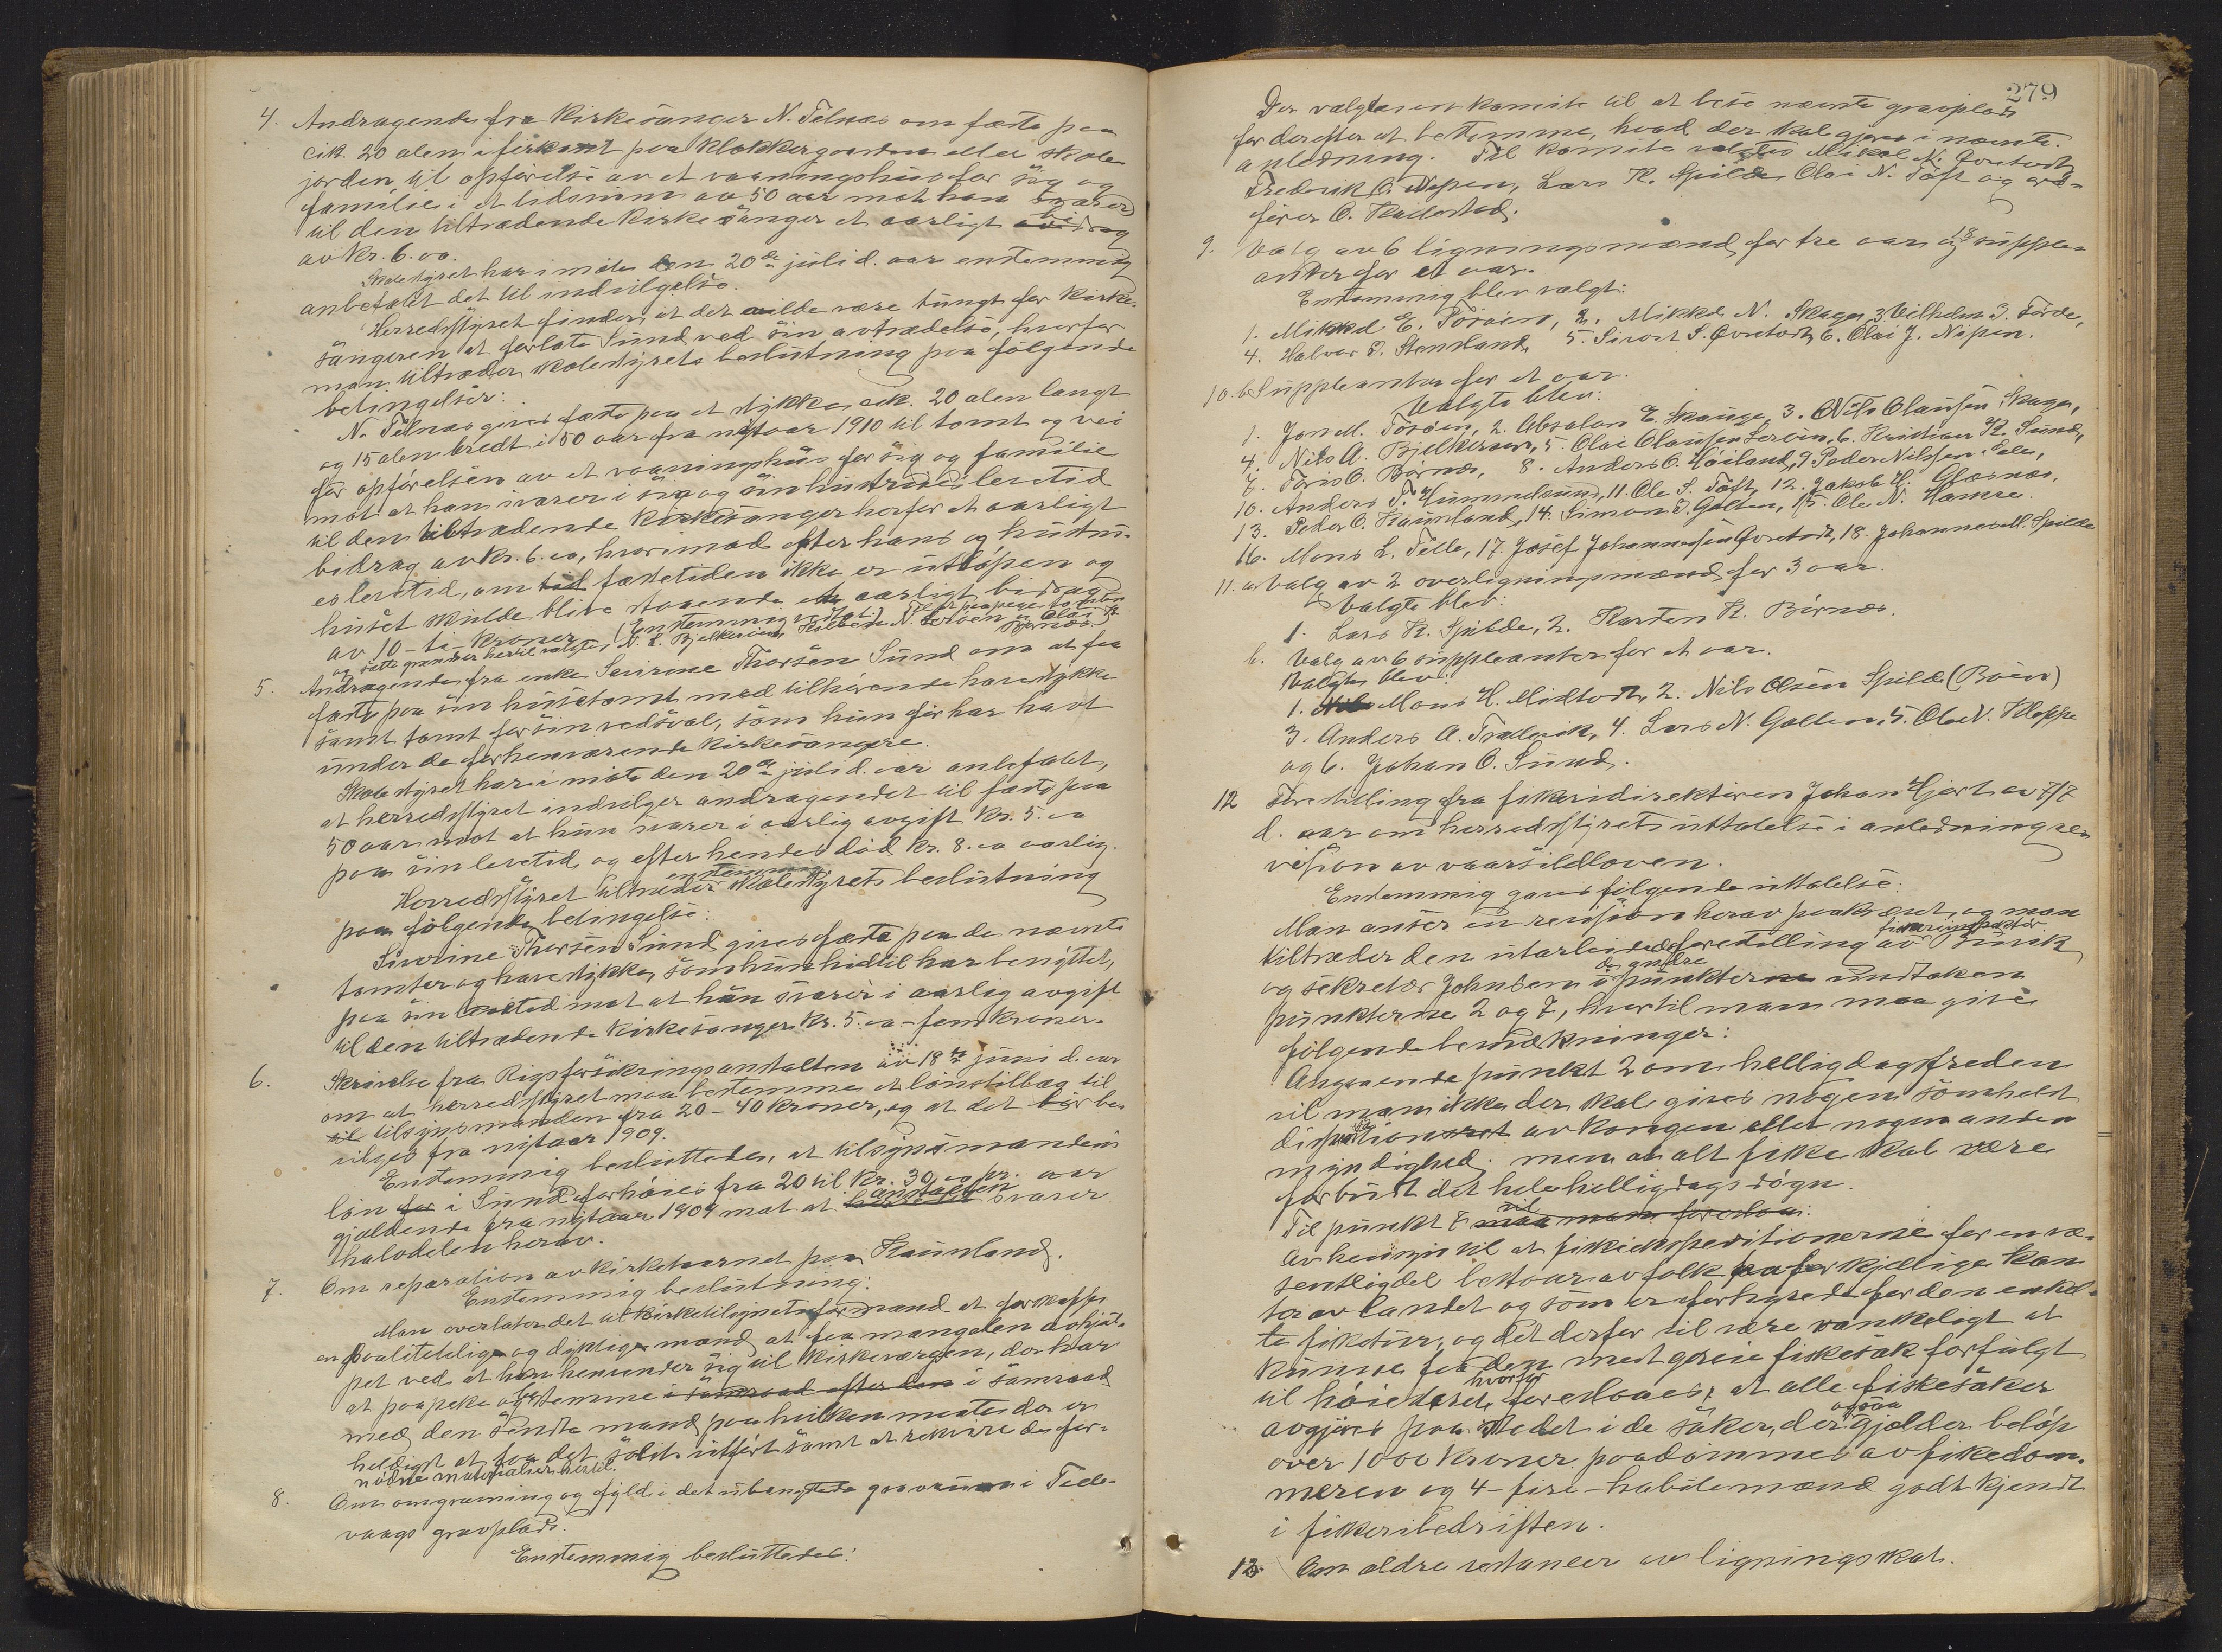 4. Andragende fra Kirkesanger N. Telnæs om fæste paa
cik. 20 alen i firkant paa Klokkergaarden eller skole-
jorden til opførelse av et vaaningshus for sig og
familie i et tidsrum av 50 aar mot han svarer
til den tiltrædende kirkesanger et aarligt bidrag
av Kr. 6.00.
Skolestyret har i møte den 20de juli d. aar enstemmig
anbefalet det til indvilgelse.
Herredsstyret finder, at det vilde være tungt for kirke-
sangeren at forlate Sund ved sin avtrædelse, hvorfor
man tiltræder skolestyrets beslutning paa følgende
betingelser:
N. Telnæs gives fæste paa et stykke cik. 20 alen langt
og 15 alen bredt i 50 aar fra nytaar 1910 til tomt og vei
for opførelsen av et vaaningshus for sig og familie
mot at han svarer i sin og sin hustrues levetid
til den tiltrædende kirkesanger herfor et aarligt
bidrag av kr. 6.00, hvorimod efter hans og hustru-
es levetid, om fæstetiden ikke er utløpen og
huset skulde blive staaende et aarligt bidrag
av 10 - ti - kroner. (Enstemmig vedtat.) Til at paapege tomten
og sætte grændser hertil valgtes N. L. Bjelkerøen, N. Lerøen og Olai
Bjørnæs
5. Andragende fra enke Severine Thorsen Sund om at faa
fæste paa sin hustomt med tilhørende havestykke
samt tomt for sin vedsval, som hun før har havt
under de forhenværende kirkesangere.
Skolestyret har i møte den 20de juli d. aar anbefalet,
at herredsstyret indvilger andragendet til fæste paa
50 aar mot at hun svarer i aarlig avgift kr. 5.00
paa sin levetid og efter hendes død kr. 8.00 aarlig.
Herredsstyret tiltræder enstemmig skolestyrets beslutning
paa følgende betingelse:
Severine Thorsen Sund gives fæste paa de nævnte
tomter og havestykke, som hun hidtil har benyttet,
paa sin levetid mot at hun svarer i aarlig avgift
til den tiltrædende kirkesanger kr. 5.00 - fem kroner.
6. Skrivelse fra Rigsforsikringsanstalten av 18de juni d. aar
om at herredsstyret maa bestemme et lønstillæg til
tilsynsmanden fra 20 - 40 kroner, og at det bør be-
vilges fra nytaar 1909.
Enstemmig besluttedes, at tilsynsmandens
løn i Sund forhøies fra 20 til kr. 30.00 pr. aar
gjældende fra nytaar 1909 mot at anstalten svarer
halvdelen herav.
7. Om reparation av kirketaarnet paa Kausland.
Enstemmig beslutning:
Man overlater det til kirketilsynets formand at forskaffe
en paalitelig og dygtig mand at faa mangelen avhjul-
pet ved at han henvender sig til kirkeværgen, der har
at paapeke og bestemme i samraad
med den sendte mand paa hvilken maate der er
heldigst at faa det solid utført samt at rekvirere de for-
nødne materialier hertil.
8. Om omgravning og fyld i det ubenyttede gravrum i Tele-
vaags gravplads.
Enstemmig besluttedes:
279
Der valgtes en komite til at bese nævnte gravplads
for derefter at bestemme, hvad der skal gjøres i nævnte
anledning. Til komite valgtes Mikal N. Tveitevik,
Frederik O. Nipen, Lars K. Spilde, Olai N. Toft og ord-
fører O. Hadestad.
9. Valg av 6 ligningsmænd for tre aar og 18 supple-
anter for et aar.
Enstemmig blev valgt:
1. Mikkel E. Tøsøen, 2. Mikkel N. Skage, 3. Vilhelm J. Førde,
4. Halvor J. Stensland, 5. Sivert S. Tveitevik, 6. Olai J. Nipen.
10. b. Suppleanter for et aar.
Valgte blev:
1. Jon M. Tøsøen, 2. Absalon E. Skauge, 3. Nils Olausen Skage,
4. Nils A. Bjelkerøen, 5. Olai Olausen Lerøen, 6. Kristian K. Sund,
7. Tøris O. Børnæs, 8. Anders O. Høiland, 9. Peder Nilssen Sele,
10. Anders T. Hummelsund, 11. Ole S. Toft, 12. Jakob H. Glæsnæs,
13. Peder O. Kausland, 14. Simon J. Golten, 15. Ole N. Hamre.
16. Mons L. Telle, 17. Josef Johannessen Tveitevik, 18. Johannes M. Spilde
11. a. Valg av 2 overligningsmænd for 3 aar.
Valgte blev:
1. Lars K. Spilde, 2. Karsten K. Børnæs.
b. Valg av 6 suppleanter for et aar.
Valgte blev:
1. Mons H. Midtvik, 2. Nils Olsen Spilde (Boen)
3. Anders A. Trellevik, 4. Lars N. Golten, 5. Ole N. Kleppe
og 6. Johan O. Sund.
12 Forestilling fra fiskeridirektøren Johan Hjort av 7/7
d. aar om herredsstyrets uttalelse i anledning re-
vision av vaarsildloven.
Enstemmig gaves følgende uttalelse:
Man anser en revision herav paakrævet, og man
tiltræder den utarbeidede forestilling av fiskeriinspektør Buvik
og sekretær Johnsen i de andre punkter undtaken
punkterne 2 og 7, hvortil man maa give
følgende bemærkninger:
Angaaende punkt 2 om helligdagsfreden
vil man ikke der skal gives nogensomhelst
dispensation av kongen eller nogen anden
myndighed, men at alt fiske skal være
forbudt det hele helligdags døgn.
Til punkt 7
Av hensyn til at fiskeekspeditionerne for en væ-
sentlig del bestaar av folk fra forskjellige kan-
ter av landet og som er forhyret for den enkel-
te fisketur, og det derfor vil være vanskeligt at
kunne faa dem med greie fiskesak forfulgt
til høiesteret, hvorfor foreslaaes, at alle fiskesaker
avgjøres paa stedet i de saker, der ogsaa gjælder beløp
over 1000 kroner paadømmes av fiskedom-
meren og 4 - fire - habile mænd godt kjendt
i fiskeribedriften.
13 Om ældre restancer av ligningsskat.